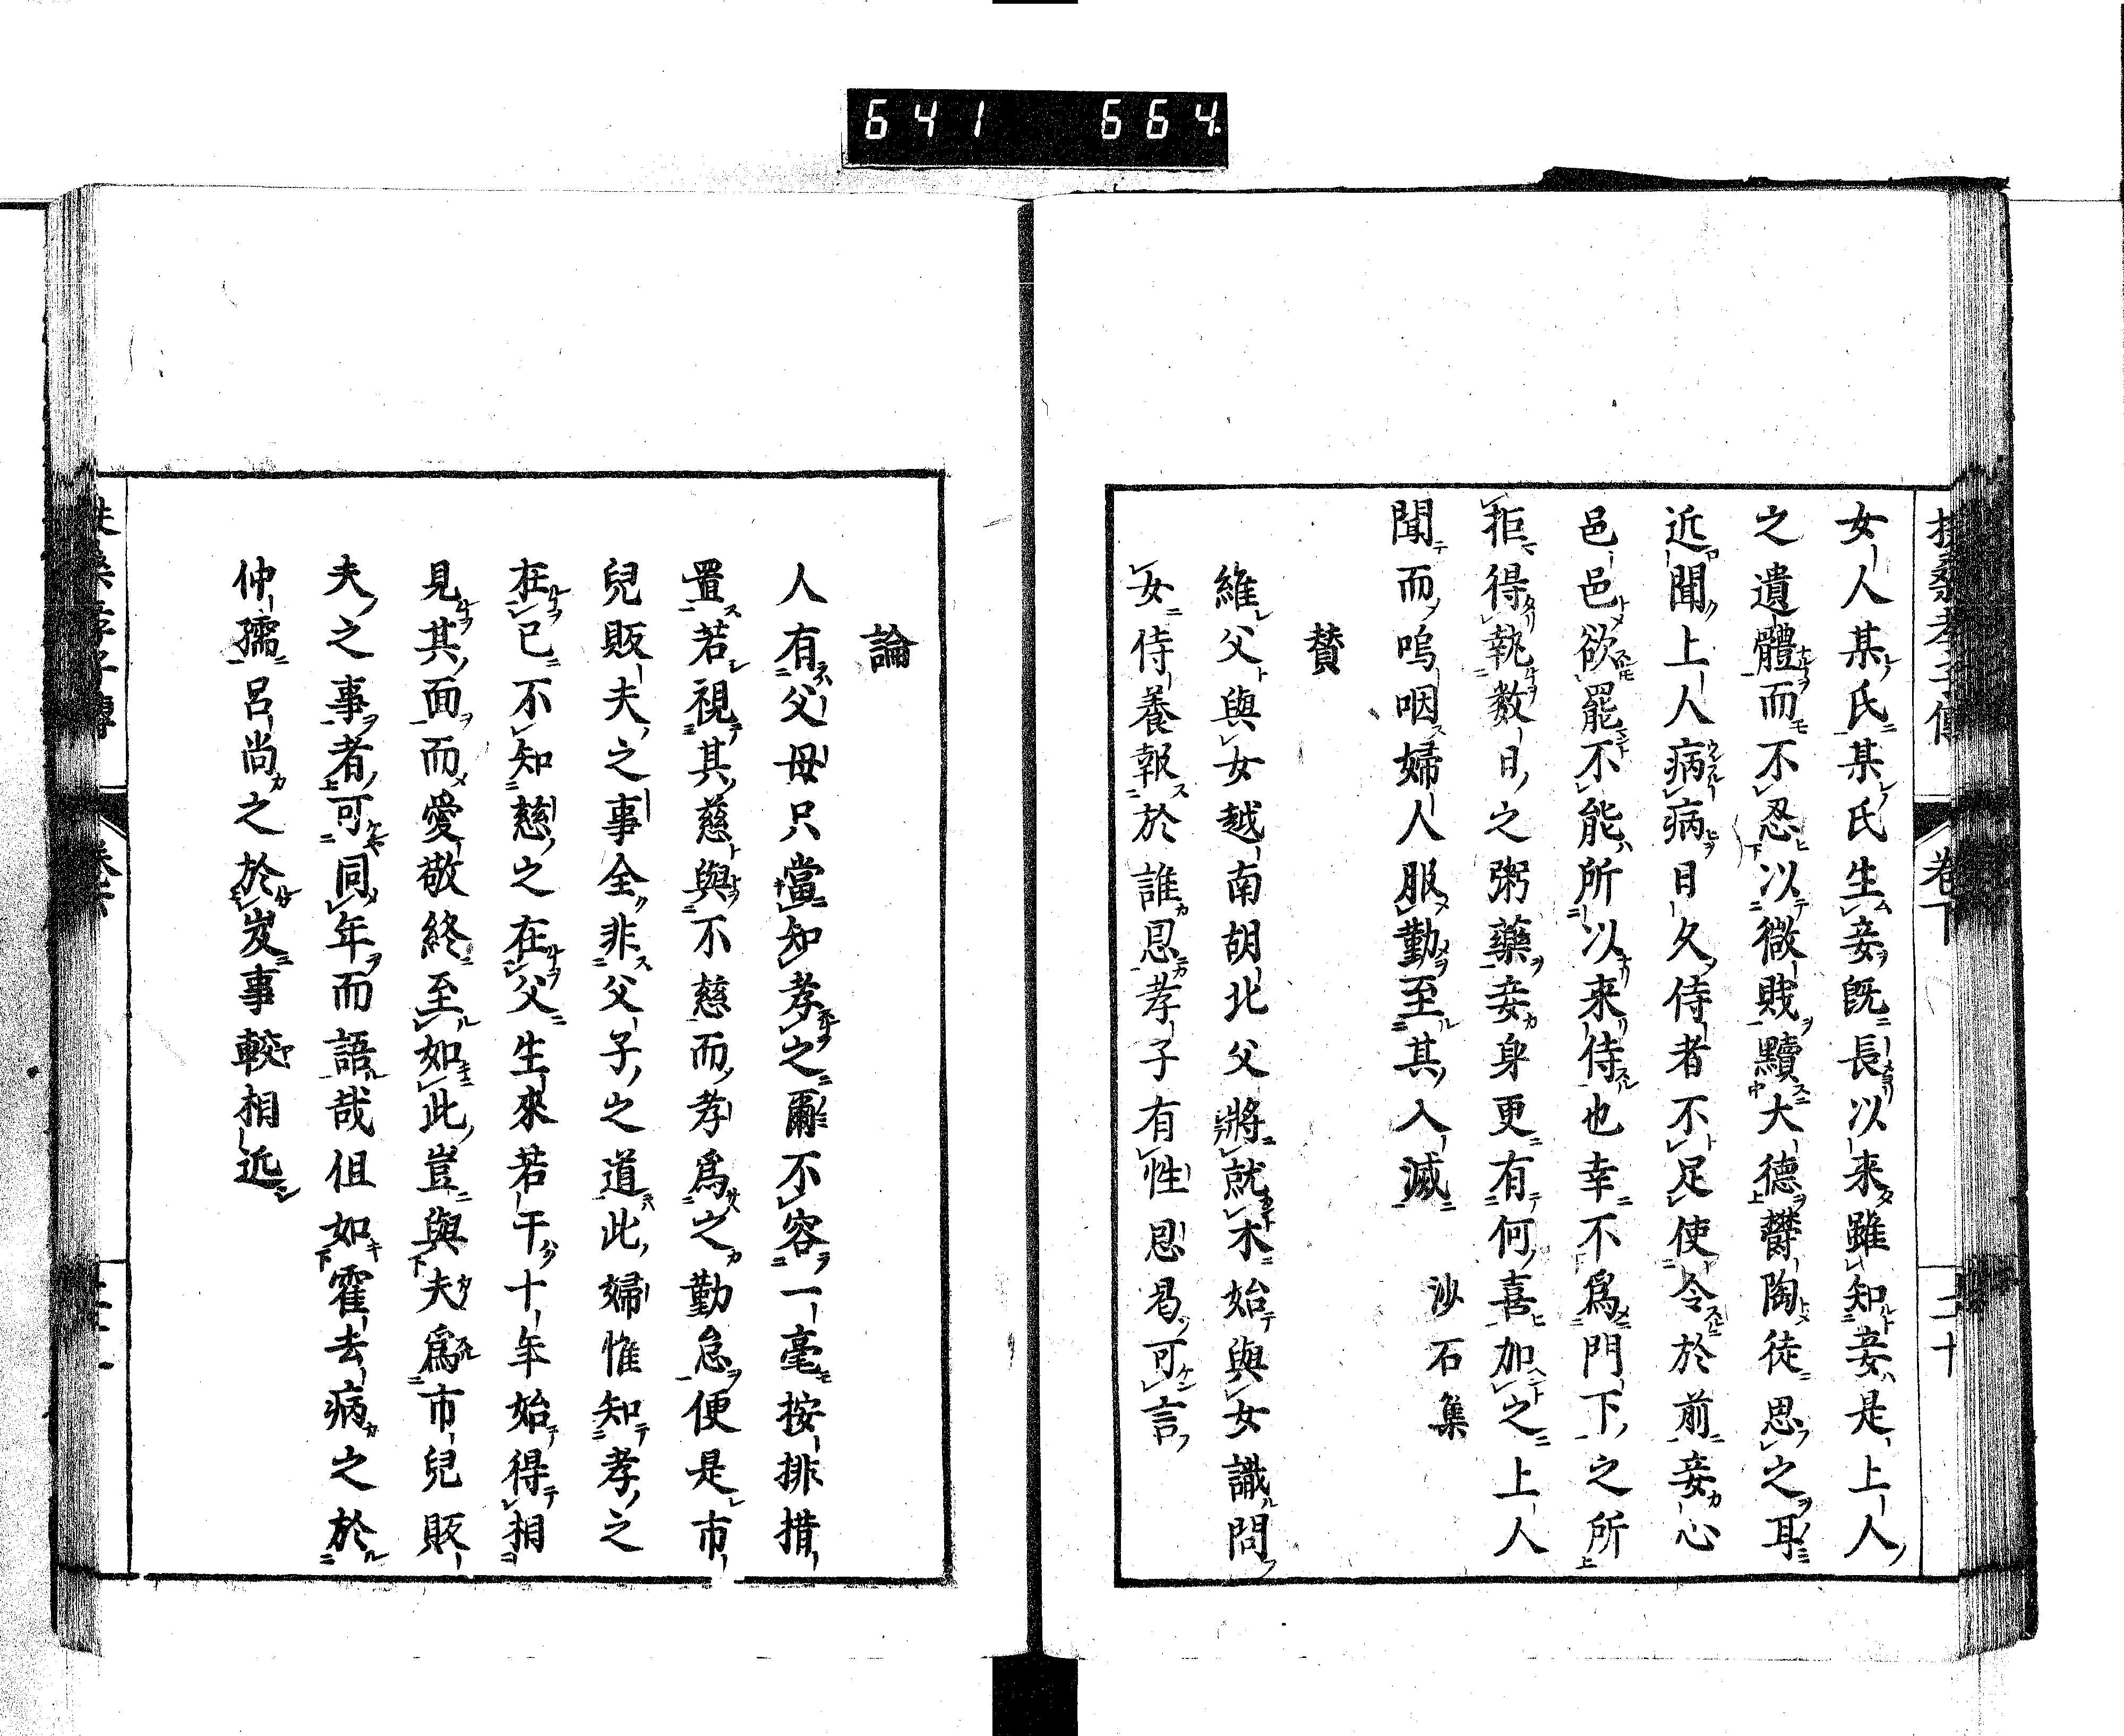 641 664
女人某氏某氏生妾既長以来雖知妾是上人
之遺體而不忍以微賎黷大德欝陶徒思之耳
近聞上人病病日久侍者不足使令於前妾心
邑邑欲罷不能所以来侍也幸不爲門下之所
拒得執数日之粥藥妾身更有何喜加之上人
聞而嗚咽婦人服勤至其入滅
沙石集
賛
維父與女越南胡北父將就木始與女識問
女侍養報於誰恩孝子有性恩曷可言
論
人有父母只當知孝之爾不容一毫按排措
置若視其慈與不慈而孝爲之勤怠便是市
兒販夫之事全非父子之道此婦惟知孝之
在己不知慈之在父生來若干十年始得相
見其面而愛敬終至如此豈與夫爲市兒販
夫之事者可同年而語哉但如霍去病之於
仲孺呂尚之於岌事較相近